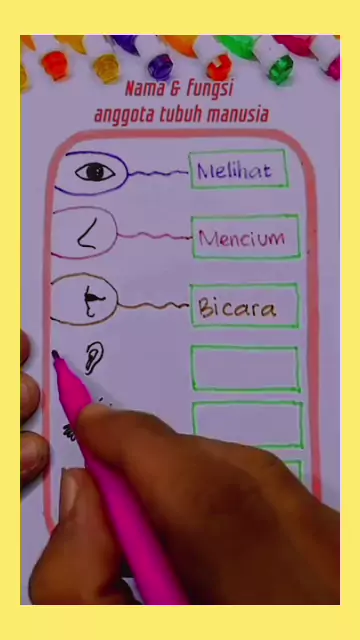 Nama & fungsi
anggota tubuh manusia
Melihat
Mencium
Bicara